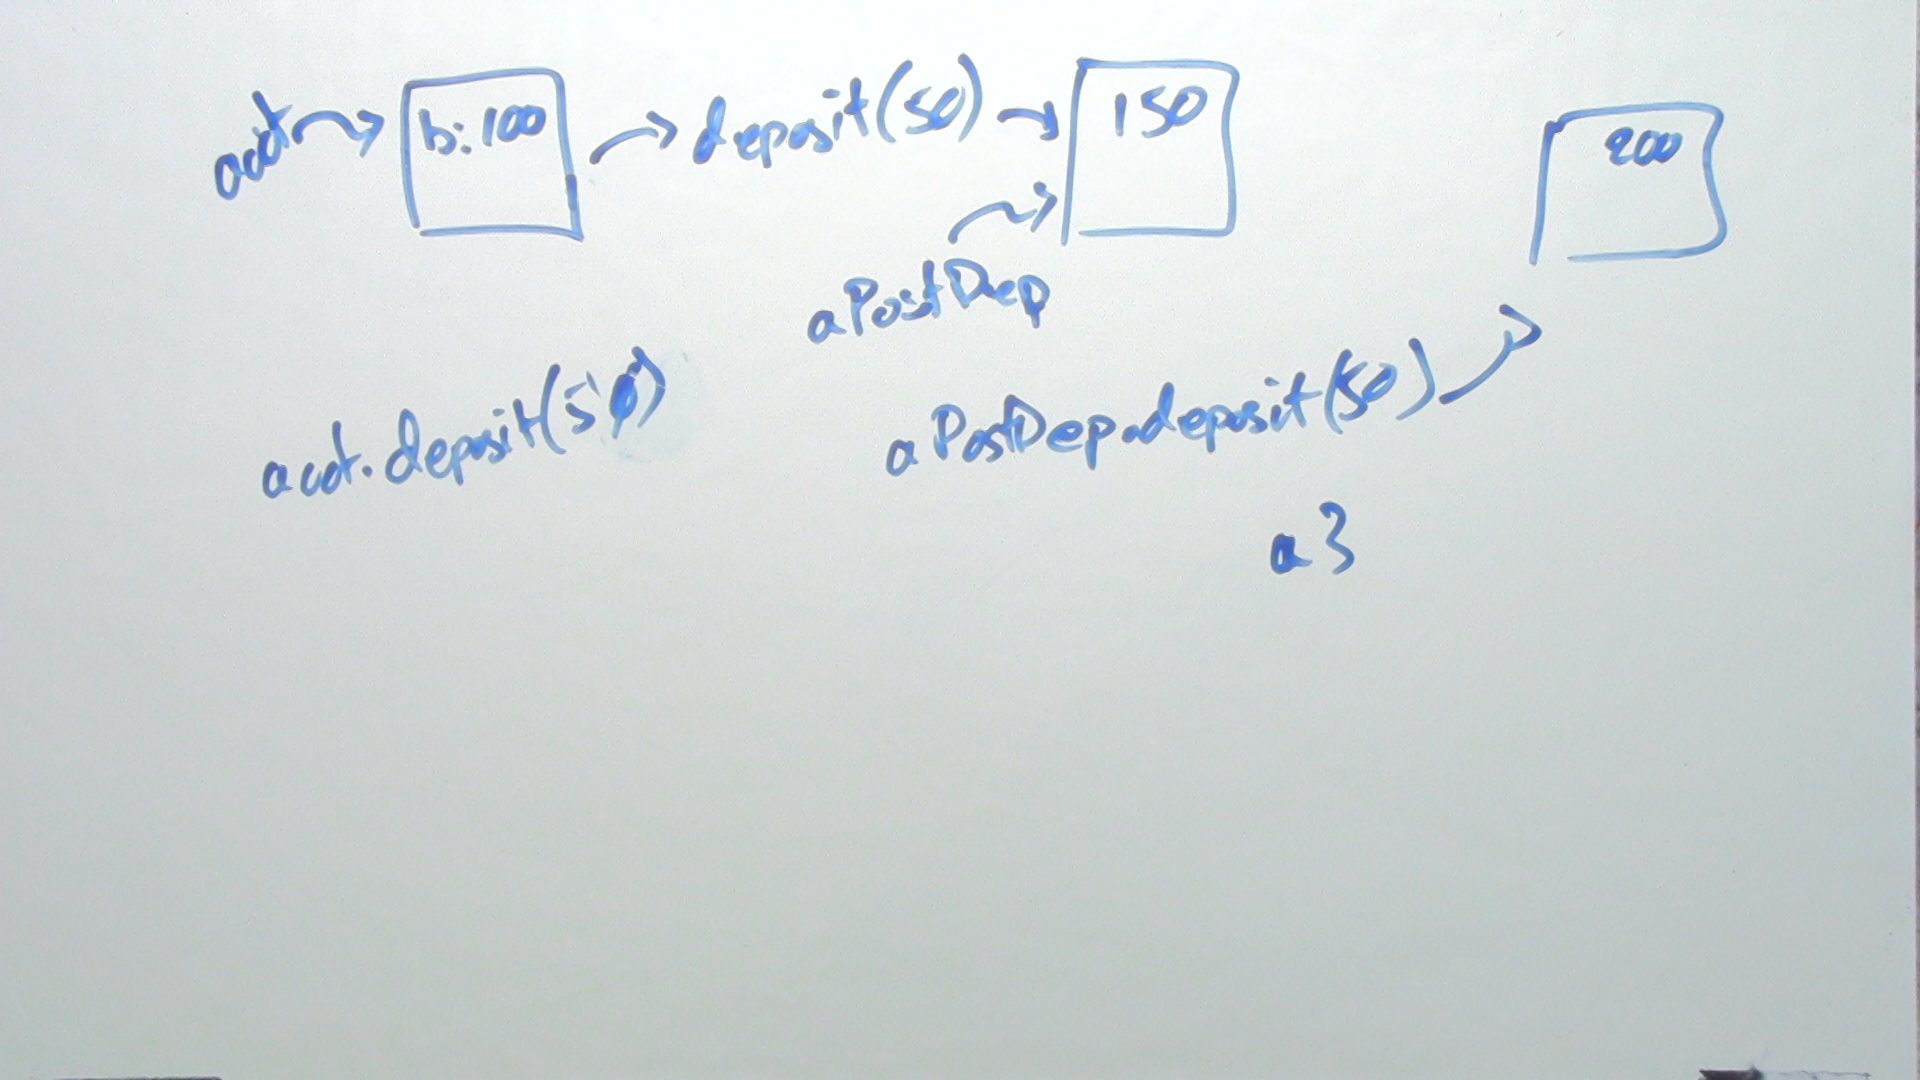 acct b: 100 deposit(50) 150
200
aPostDep
acct.deposit(50)
aPostDep.deposit(50)
a3